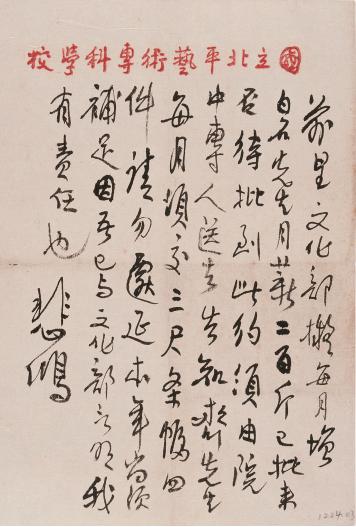 國立北平藝術專科學校
前呈文化部擬每月增
白石先生月薪二百斤已批來
否待批到此約須由院
中專人送去告知齊先生
每月須交三尺条幅四
件請勿延本年尚須
補足因吾已与文化部言明我
有責任也 悲鴻